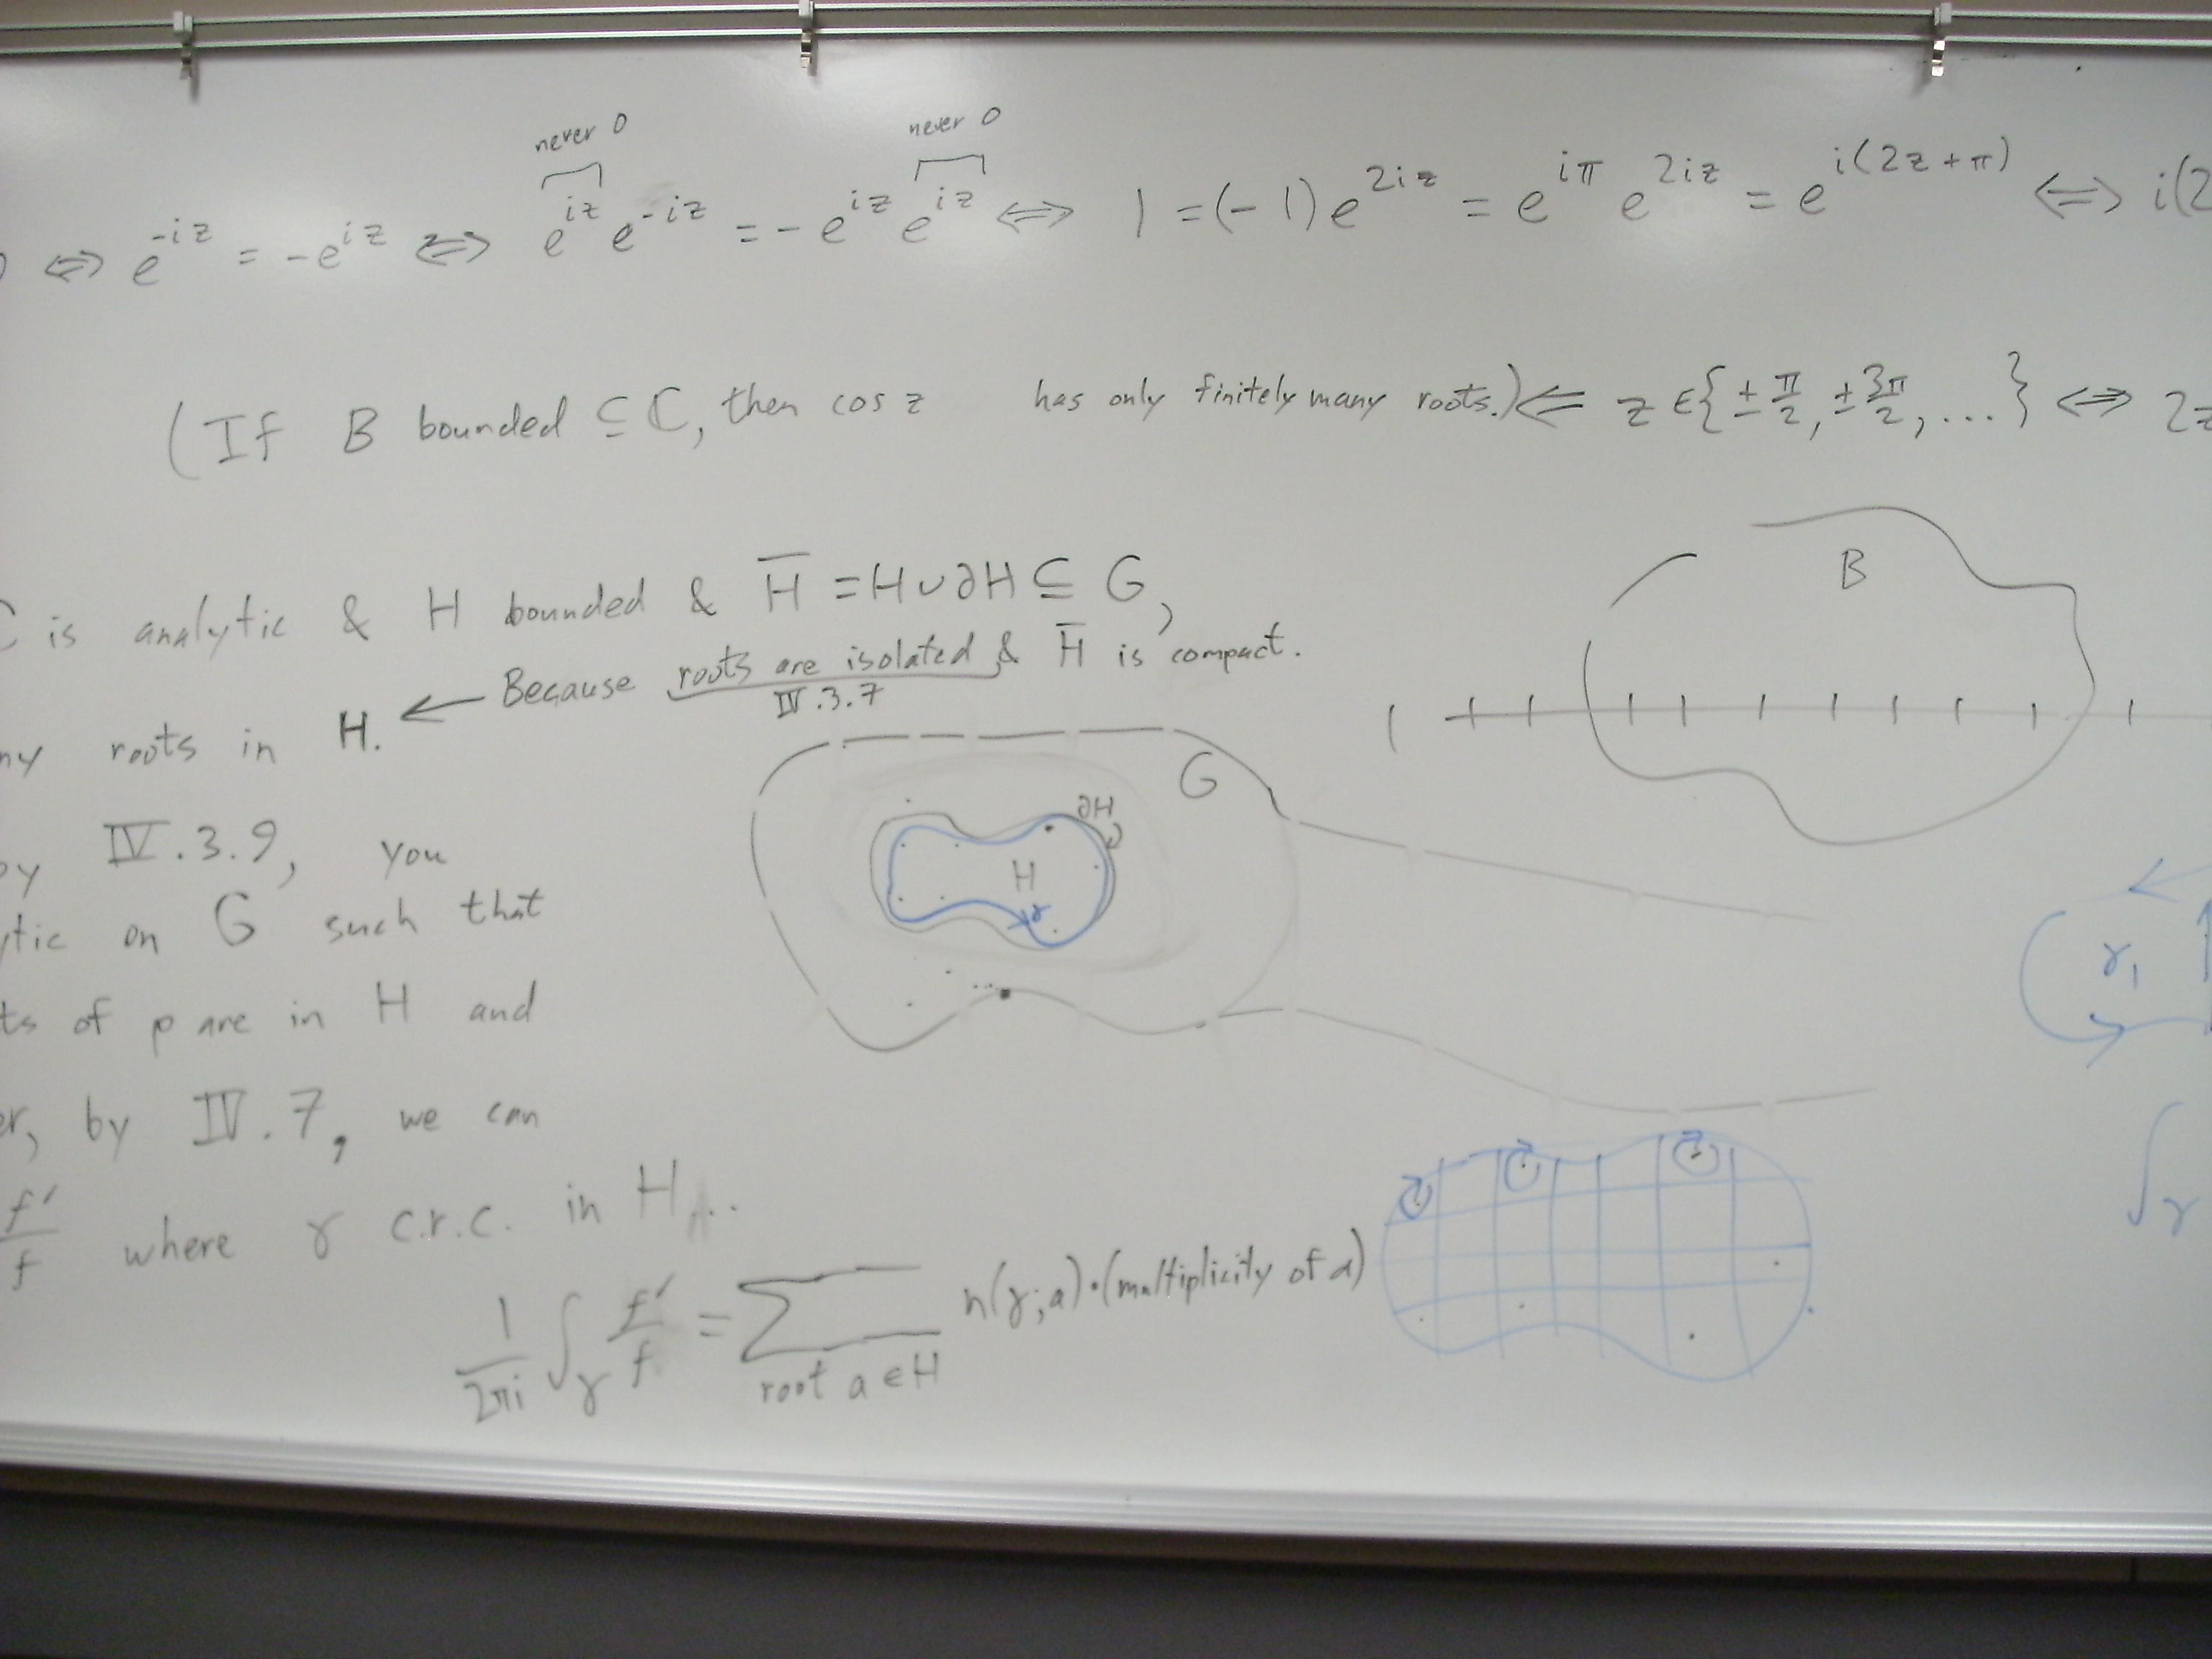 never 0 never 0
⇔ e^{-iz} = -e^{iz} ⇔ e^{iz} e^{-iz} = -e^{iz} e^{iz} ⇔ 1 = (-1) e^{2iz} = e^{iπ} e^{2iz} = e^{i(2z+π)} ⇔ i(2
(If B bounded ⊆ ℂ, then cos z has only finitely many roots.) ⇐ z ∈ {± π/2, ± 3π/2, ...} ⇔ 2z
B
is analytic & H bounded & H̅ = H ∪ ∂H ⊆ G,
← Because roots are isolated & H̅ is compact.
IV.3.7
ny roots in H.
G
∂H
H
γ
by IV.3.9, you
ytic on G such that
ts of p are in H and
er, by IV.7, we can
f'/f where γ c.r.c. in H
1/2πi ∫_γ f'/f = Σ_{root a ∈ H} n(γ; a)·(multiplicity of a)
γ₁
∫_γ